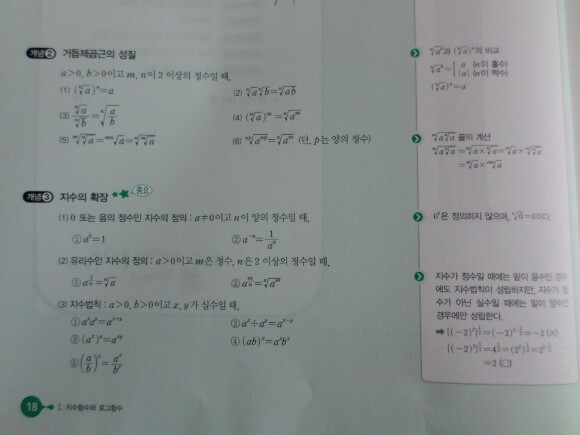 개념 2 거듭제곱근의 성질
a>0, b>0이고 m, n이 2 이상의 정수일 때,
(1) (ⁿ√a)ⁿ=a
(2) ⁿ√a ⁿ√b=ⁿ√ab
(3) ⁿ√a/ⁿ√b=ⁿ√(a/b)
(4) (ⁿ√a)ᵐ=ⁿ√aᵐ
(5) ᵐ√ⁿ√a=ᵐⁿ√a=ⁿ√ᵐ√a
(6) ⁿᵖ√aᵐᵖ=ⁿ√aᵐ (단, p는 양의 정수)
개념 3 지수의 확장 중요
(1) 0 또는 음의 정수인 지수의 정의 : a≠0이고 n이 양의 정수일 때,
① a⁰=1
② a⁻ⁿ=1/aⁿ
(2) 유리수인 지수의 정의 : a>0이고 m은 정수, n은 2 이상의 정수일 때,
① a^(1/n)=ⁿ√a
② a^(m/n)=ⁿ√aᵐ
(3) 지수법칙 : a>0, b>0이고 x, y가 실수일 때,
① aˣaʸ=aˣ⁺ʸ
② aˣ÷aʸ=aˣ⁻ʸ
③ (aˣ)ʸ=aˣʸ
④ (ab)ˣ=aˣbˣ
⑤ (a/b)ˣ=aˣ/bˣ
18 I. 지수함수와 로그함수
ⁿ√aⁿ과 (ⁿ√a)ⁿ의 비교
ⁿ√aⁿ={ a (n이 홀수)
|a| (n이 짝수)
(ⁿ√a)ⁿ=a
꼴의 계산
0⁰은 정의하지 않으며, ⁿ√0=0이다.
지수가 정수일 때에는 밑이 음수인 경우
에도 지수법칙이 성립하지만, 지수가 정
수가 아닌 실수일 때에는 밑이 양수인
경우에만 성립한다.
➡ {(-2)²}^(1/2)=(-2)^(2·1/2)=-2 (×)
{(-2)²}^(1/2)=4^(1/2)=(2²)^(1/2)=2^(2·1/2)
=2 (○)